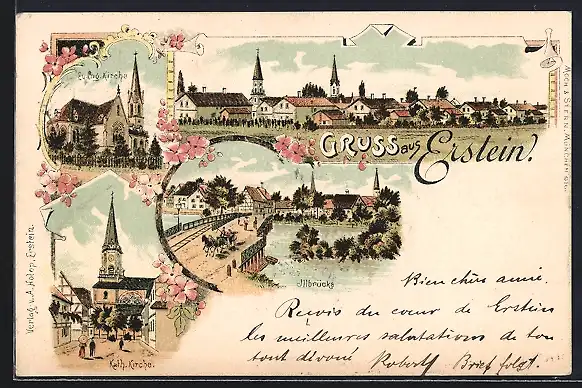 Ev. Prot. Kirche
GRUSS aus Erstein!
Illbrücke
Kath. Kirche.
Verlag v. A. Holen, Erstein.
MOCH & STERN, MÜNCHEN
Bien chère amie.
Recois du cœur de Erstein
les meilleures salutations de ton
tout dévoué Robert Brief folgt.